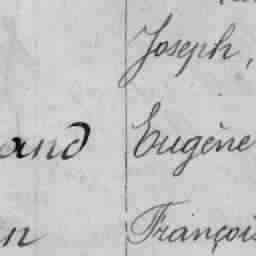 Joseph,
and Eugène
n François